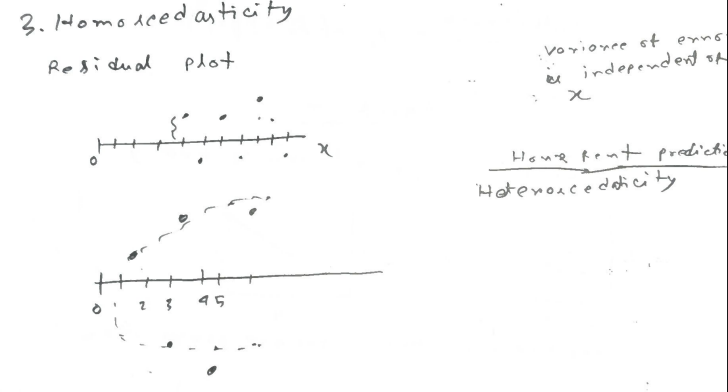 3. Homoscedasticity
Residual plot
variance of erro
is independent of
x
0
x
House Rent predictio
Heteroscedaticity
0 2 3 4 5